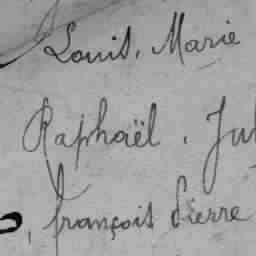 Louis, Marie
Raphaël, Jul
, françois Pierre